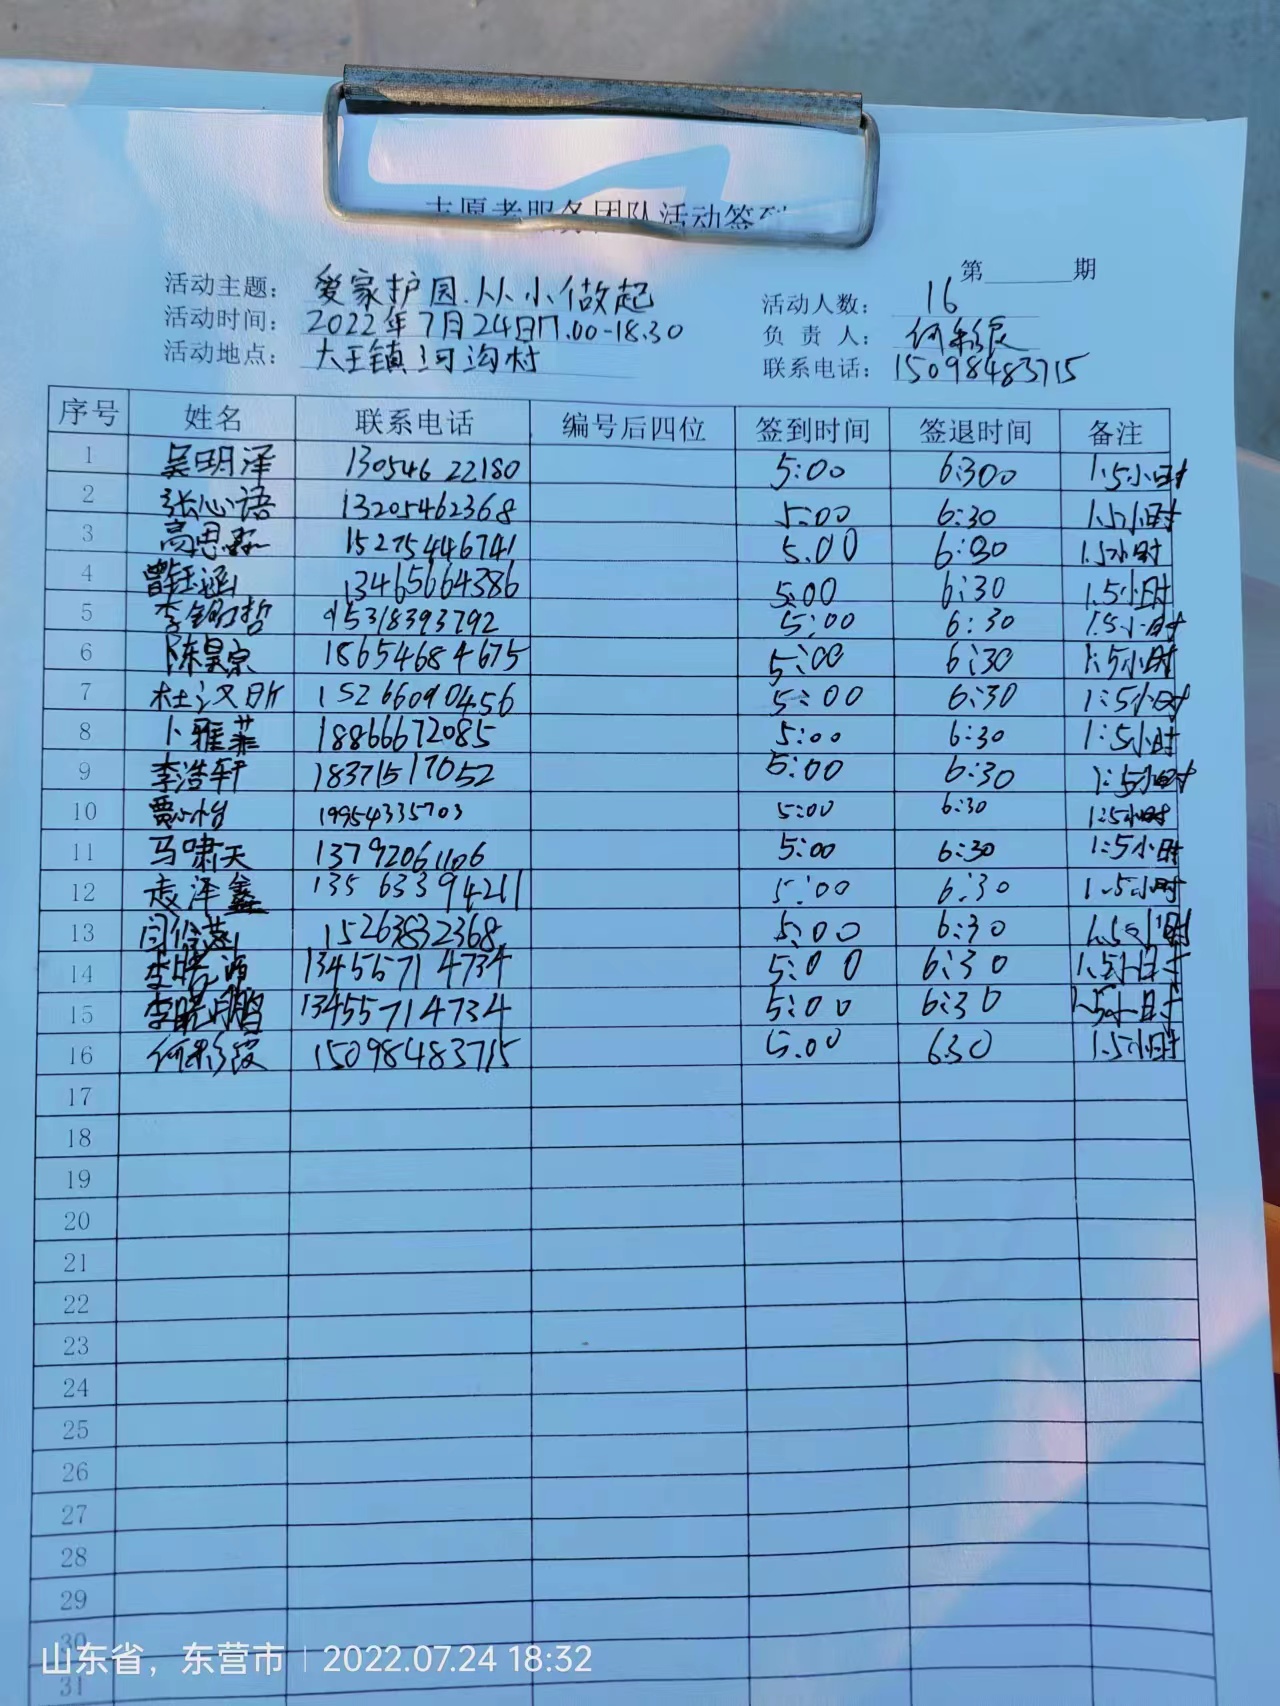 志愿者服务团队活动签到
第______期
活动主题：爱家护园.从小做起
活动人数：16
活动时间：2022年7月24日17.00-18.30
负责人：
活动地点：大王镇河沟村
联系电话：15098483715
序号 姓名 联系电话 编号后四位 签到时间 签退时间 备注
1 吴明泽 13054622180 5:00 6:300 1.5小时
2 张心语 13205462368 5:00 6:30 1.5小时
3 高思 15275446741 5.00 6:30 1.5小时
4 曾钰涵 13465664386 5:00 6:30 1.5小时
5 李 哲 15318393792 5:00 6:30 1.5小时
6 陈昊京 18654684675 5:00 6:30 1:5小时
7 杜汶昕 15266090456 5:00 6:30 1:5小时
8 卜雅菲 18866672085 5:00 6:30 1:5小时
9 李浩轩 18371517052 5:00 6:30 1:5小时
10 贾小怡 19954335703 5:00 6:30 1:5小时
11 马啸天 13792061106 5:00 6:30 1:5小时
12 泽鑫 13563394211 5:00 6:30 1.5小时
13 闫 15263832368 5:00 6:30 1.5小时
14 李 源 13455714734 5:00 6:30 1.5小时
15 李晓鹏 13455714734 5:00 6:30 1.5小时
16 何 15098483715 5.00 630 1.5小时
17
18
19
20
21
22
23
24
25
26
27
28
29
30
31
山东省，东营市 | 2022.07.24 18:32